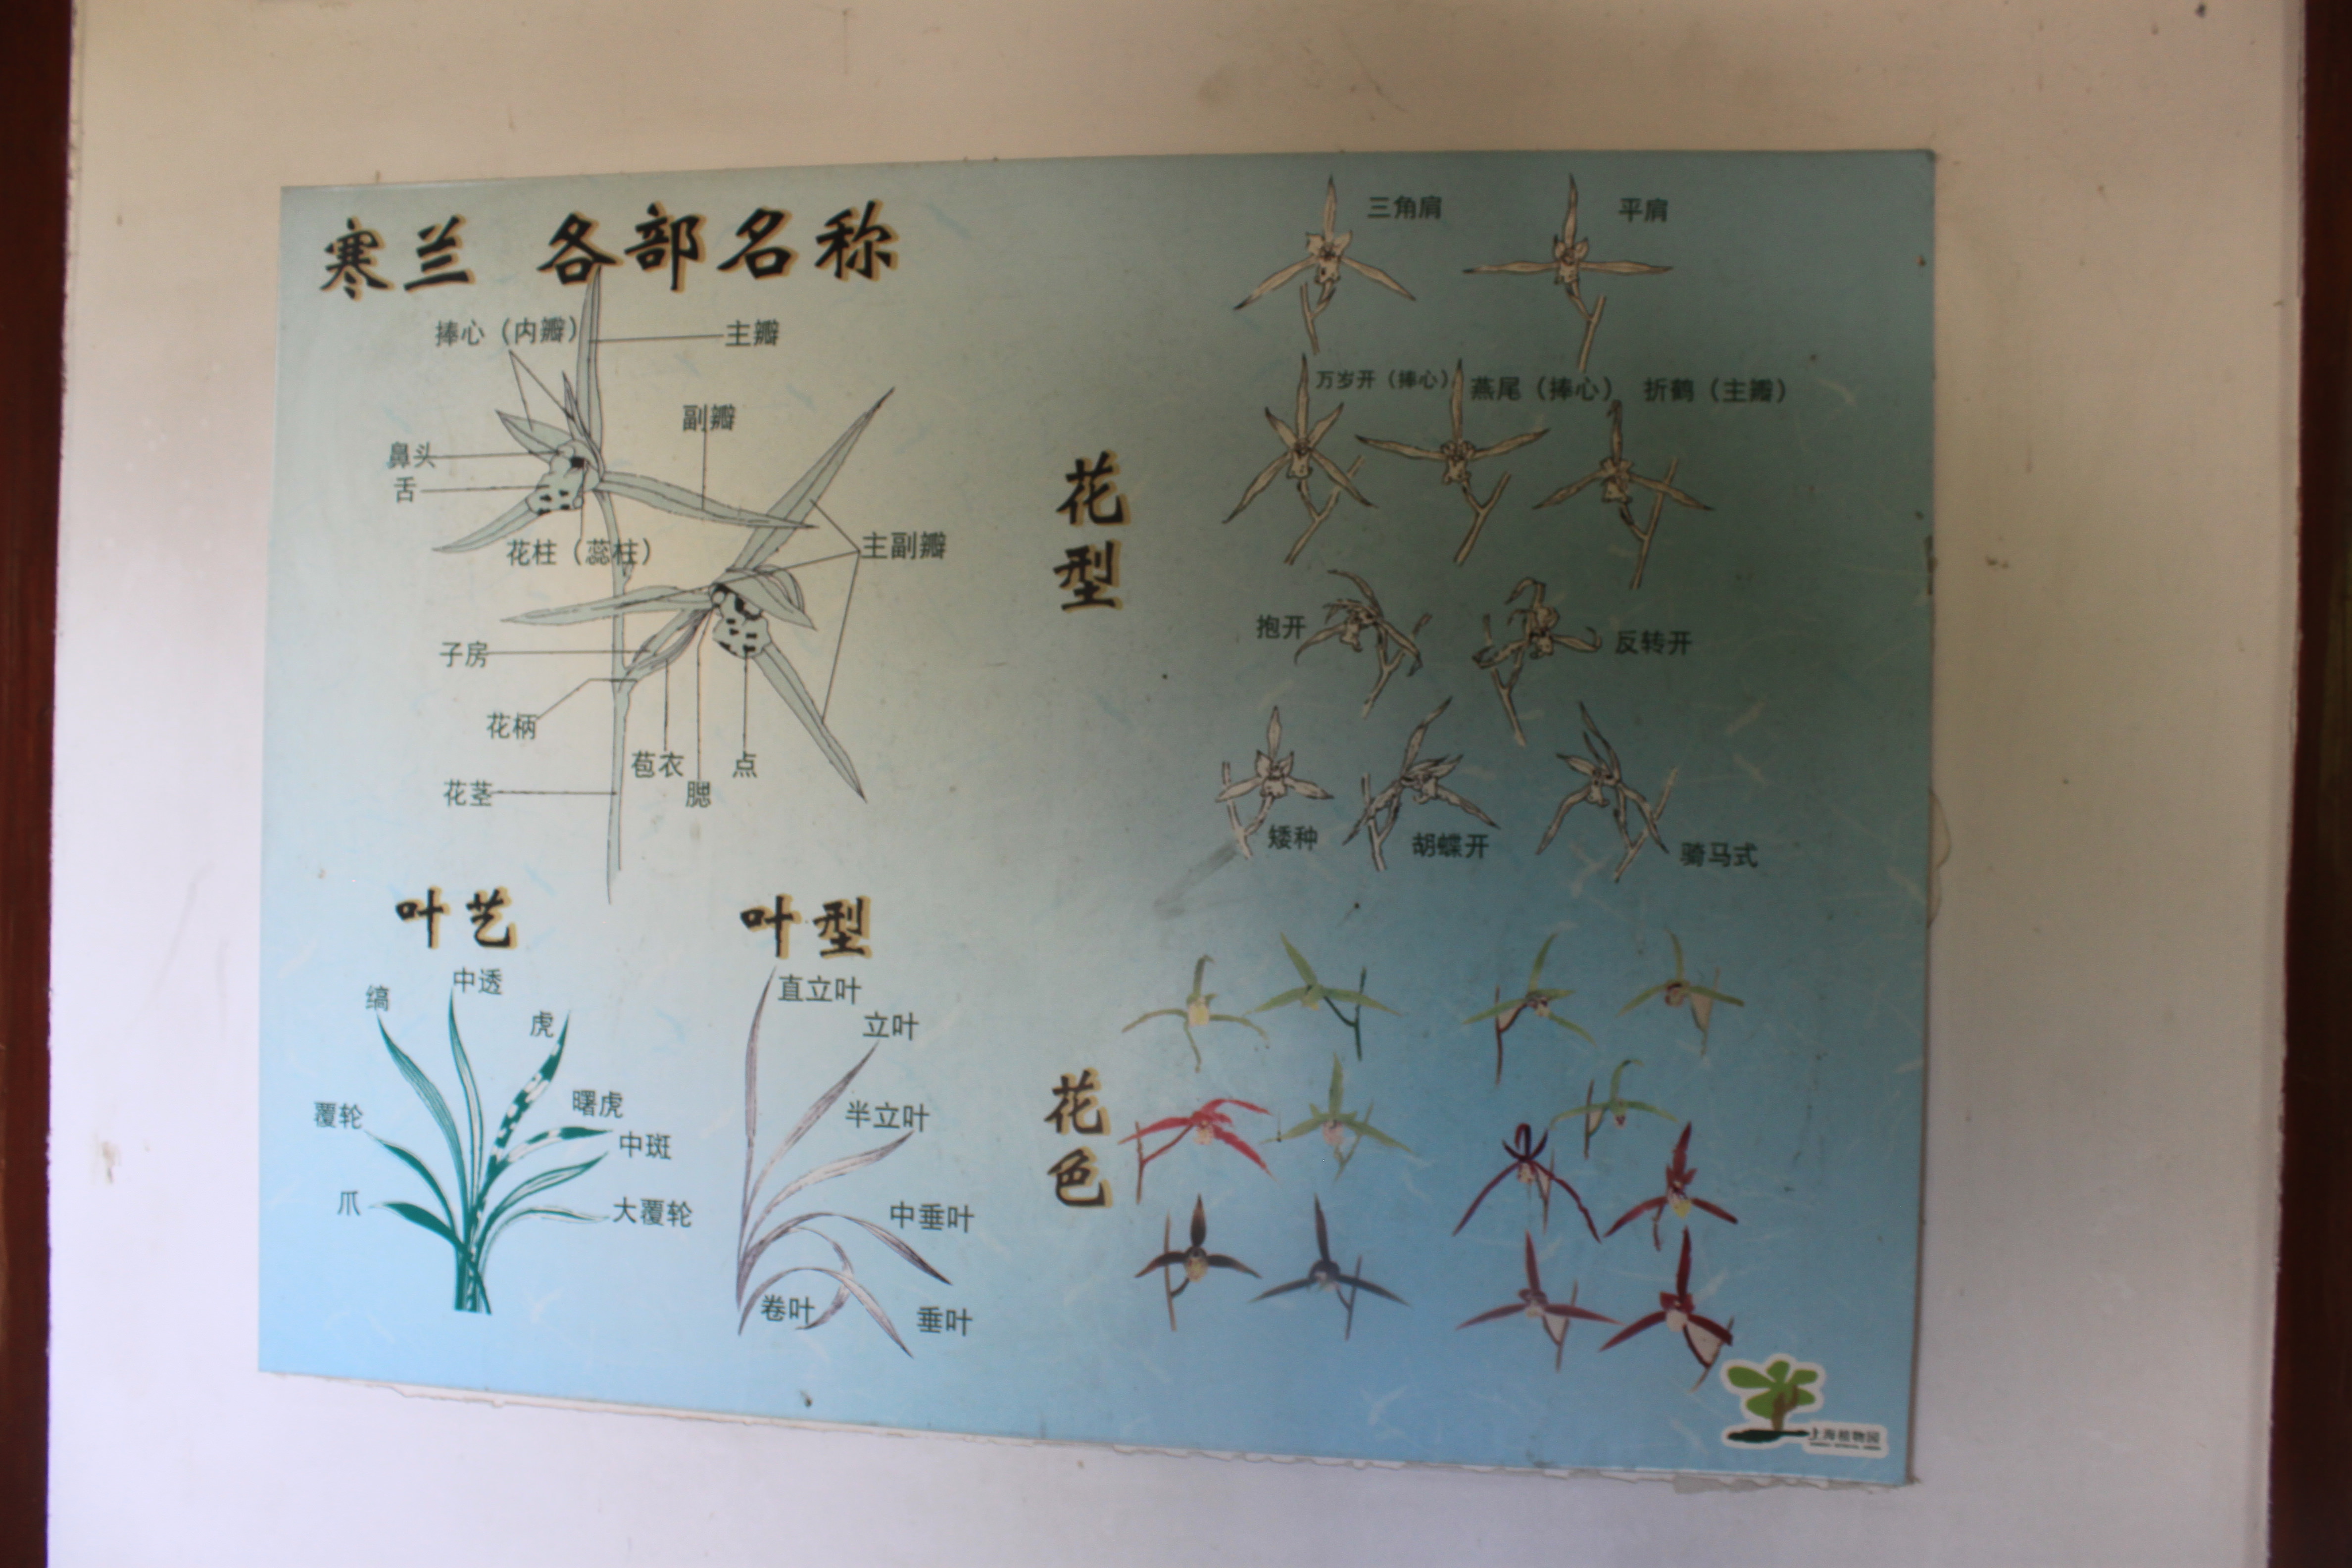 寒兰 各部名称
捧心（内瓣）
主瓣
副瓣
鼻头
舌
花柱（蕊柱）
主副瓣
子房
花柄
苞衣
点
腮
花茎
叶艺
中透
缟
虎
曙虎
覆轮
中斑
爪
大覆轮
叶型
直立叶
立叶
半立叶
中垂叶
卷叶
垂叶
花型
三角肩
平肩
万岁开（捧心）
燕尾（捧心）
折鹤（主瓣）
抱开
反转开
矮种
胡蝶开
骑马式
花色
上海植物园